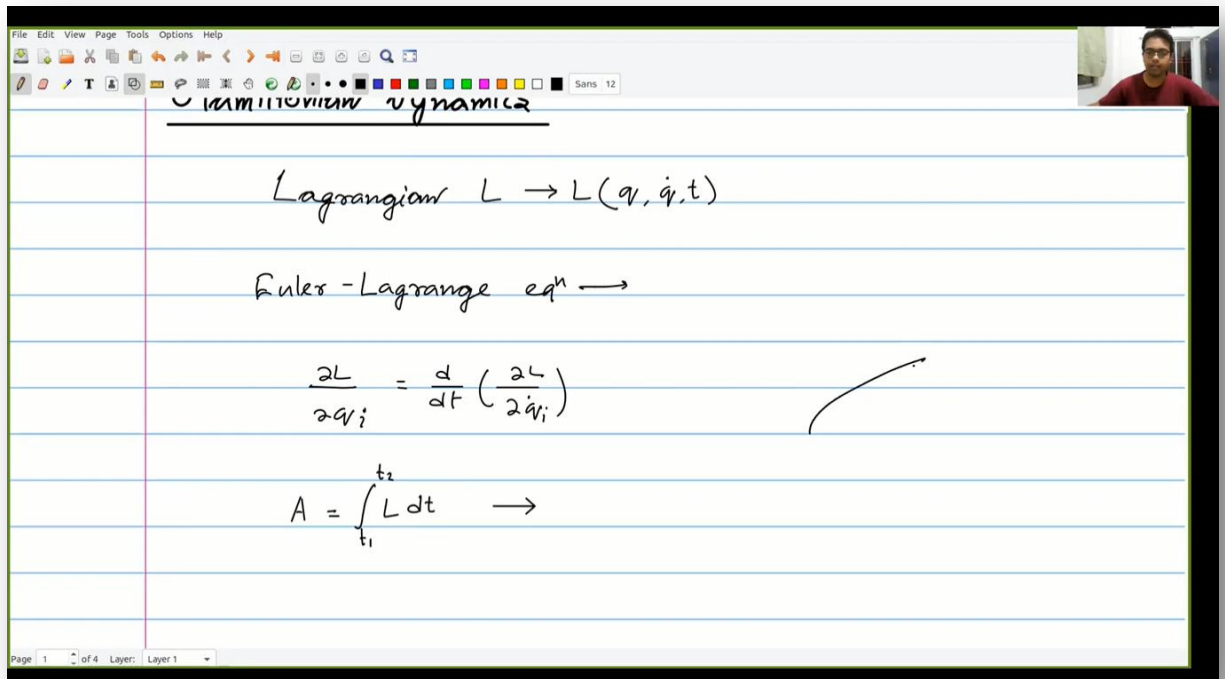 File Edit View Page Tools Options Help
T Sans 12
Hamiltonian Dynamics
Lagrangian L → L(q, q̇, t)
Euler - Lagrange eqⁿ →
∂L/∂qᵢ = d/dt (∂L/∂q̇ᵢ)
A = ∫_{t₁}^{t₂} L dt →
Page 1 of 4 Layer: Layer 1